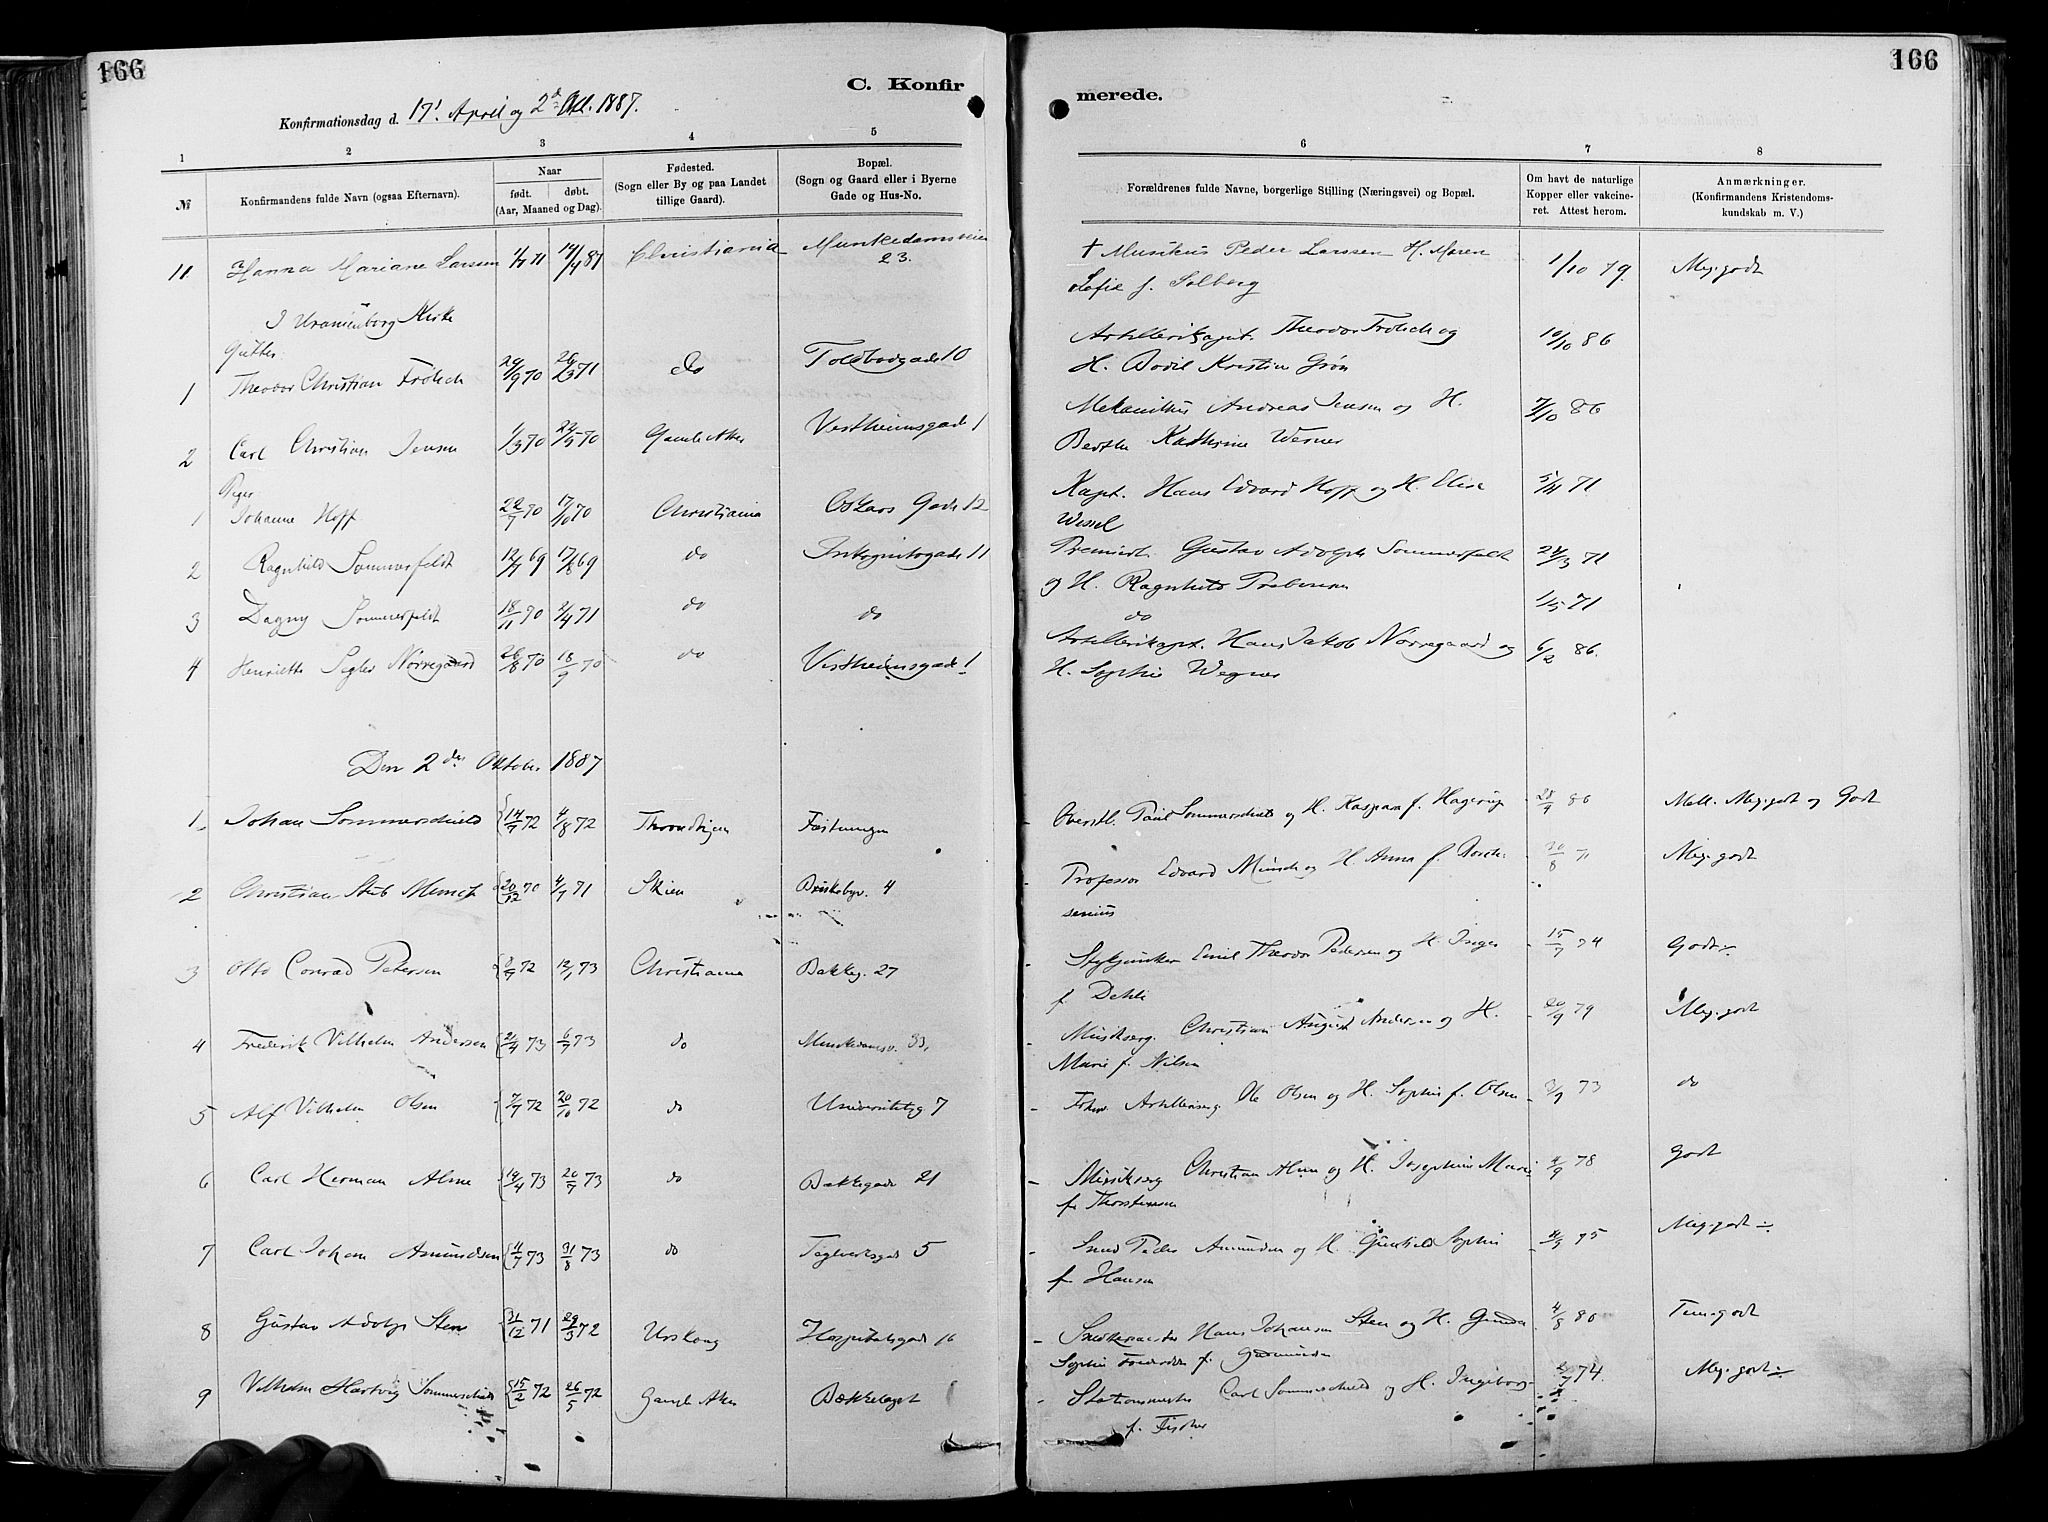 166
C. Konfirmerede.
166
Konfirmationsdag d. 17' April og 2d Okt. 1887.
1 2 3 4 5 6 7 8
№ Konfirmandens fulde Navn (ogsaa Efternavn).
Naar
født. døbt.
(Aar, Maaned og Dag).
Fødested.
(Sogn eller By og paa Landet
tillige Gaard).
Bopæl.
(Sogn og Gaard eller i Byerne
Gade og Hus-No.
Forældrenes fulde Navne, borgerlige Stilling (Næringsvei) og Bopæl.
Om havt de naturlige
Kopper eller vakcine-
ret. Attest herom.
Anmærkninger.
(Konfirmandens Kristendoms-
kundskab m. V.)
11 Hanna Mariane Larsen 1/7 71 17/4 87 Christiania Munkedamsveien 23. † Musikus Peder Larssen H. Maren 1/10 79. Meg. godt
Sofie f. Solberg
I Uranienborg Kirke
Gutter
1 Theodor Christian Frölich 29/9 70 26/3 71 do Toldbodgade 10 Artillerikapt. Theodor Frölich og 10/10 86
H. Bodil Kristine Grøn
2 Carl Christian Jensen 1/3 70 29/5 70 Gamle Aker Vestheimsgade 1 Mekanikus Andreas Jensen og H. 7/10 86
Berthe Kathrine Werner
Piger
1 Johanne Hoff 22/7 70 17/10 70 Christiania Oskars Gade 12 Kapt. Hans Edvard Hoff og H. Elise 71
Wessel
2 Ragnhild Sommerfeldt 12/7 69 17/8 69 do Inkognitogade 11 Premierl. Gustav Adolph Sommerfeldt 24/3 71
og H. Ragnhild Prebensen
3 Dagny Sommerfeldt 18/11 70 2/4 71 do do do 1/5 71
4 Henriette Segler Nörregaard 26/8 70 18/9 70 do Vestheimsgade 1 Artillerikapt. Hans Jakob Nörregaard og 6/2 86.
H. Sophie Wegner
Den 2den Oktober 1887
1 Johan Sommerschield 14/7 72 4/8 72 Throndhjem Fæstningen Oberstl. Paul Sommerschield og H. Kaspara f. Hagerup 28/9 86 Mell. Meg. godt og Godt
2 Christian Stub Münch 20/12 70 4/7 71 Skien Briskebyv. 4 Professor Edvard Münch og H. Anna f. 20/8 71 Meg. godt
senius
3 Otto Conrad Petersen 2/7 72 12/1 73 Christiania Bakkeg. 27 Stykjunker Emil Theodor Pedersen og H. Inger 15/7 74 Godt ÷
f. Dehli
4 Frederik Vilhelm Andersen 2/4 73 6/7 73 do Munkedamsv. 33, Musikserg. Christian August Andersen og H. 20/9 79 Meg. godt
Marie f. Nilsen
5 Alf Vilhelm Olsen 7/7 72 20/10 72 do Universitetsg 7 Forhv. Artilleriserg. Ole Olsen og H. Sophie f. Olsen 73 do
6 Carl Herman Alme 14/4 73 20/7 73 do Bakkegade 21 Musikserg Christian Alme og H. Josephine Marie 4/9 78 Godt
f. Thorstensen
7 Carl Johan Amundsen 4/7 73 31/8 73 do Teglverksgade 5 Smed Peder Amundsen og H. Gunhild Sophie 75 Meg. godt ÷
f. Hansen
8 Gustav Adolf Steen 31/12 71 29/3 72 Urskoug Hospitalsgade 16 Snedkermester Hans Johansen Steen og H. Gunda 4/8 80 Tem. godt
Sophie f.
9 Vilhelm Hartvig Sommerschield 15/2 72 26/5 72 Gamle Aker Bækkelaget Stationsmester Carl Sommerschield og H. Ingeborg 74. Meg. godt ÷
f. Fischer